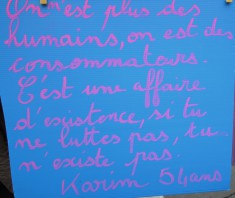 On n'est plus des
humains, on est des
consommateurs.
C'est une affaire
d'existence, si tu
ne luttes pas, tu
n'existe pas.
Karim 54ans